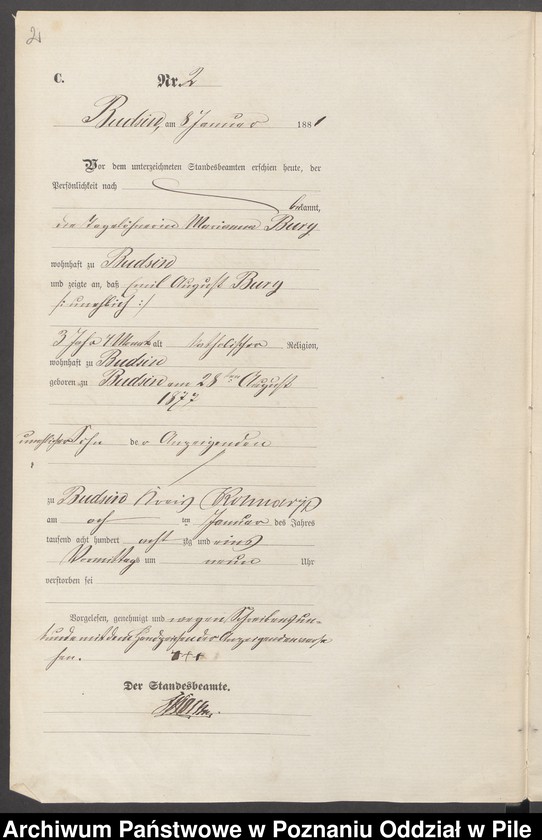 2
C.
Nr. 2
Budsin, am 8 Januar 1881
Vor dem unterzeichneten Standesbeamten erschien heute, der
Persönlichkeit nach
bekannt,
die Tagelöhnerin Marianna Burg
wohnhaft zu Budsin
und zeigte an, daß Emil August Burg
/: unehlich :/
3 Jahr 4 Monate alt katholischer Religion,
wohnhaft zu Budsin
geboren zu Budsin am 28ten August
1877
unehlicher Sohn der Anzeigenden
zu Budsin Kreis Kolmar i/P
am acht ten Januar des Jahres
tausend acht hundert acht zig und eins
Vormittags um neun Uhr
verstorben sei
Vorgelesen, genehmigt und wegen Schreibensun-
kunde mit dem Handzeichen der Anzeigenden verse
hen. +++
Der Standesbeamte.
Archiwum Państwowe w Poznaniu Oddział w Pile